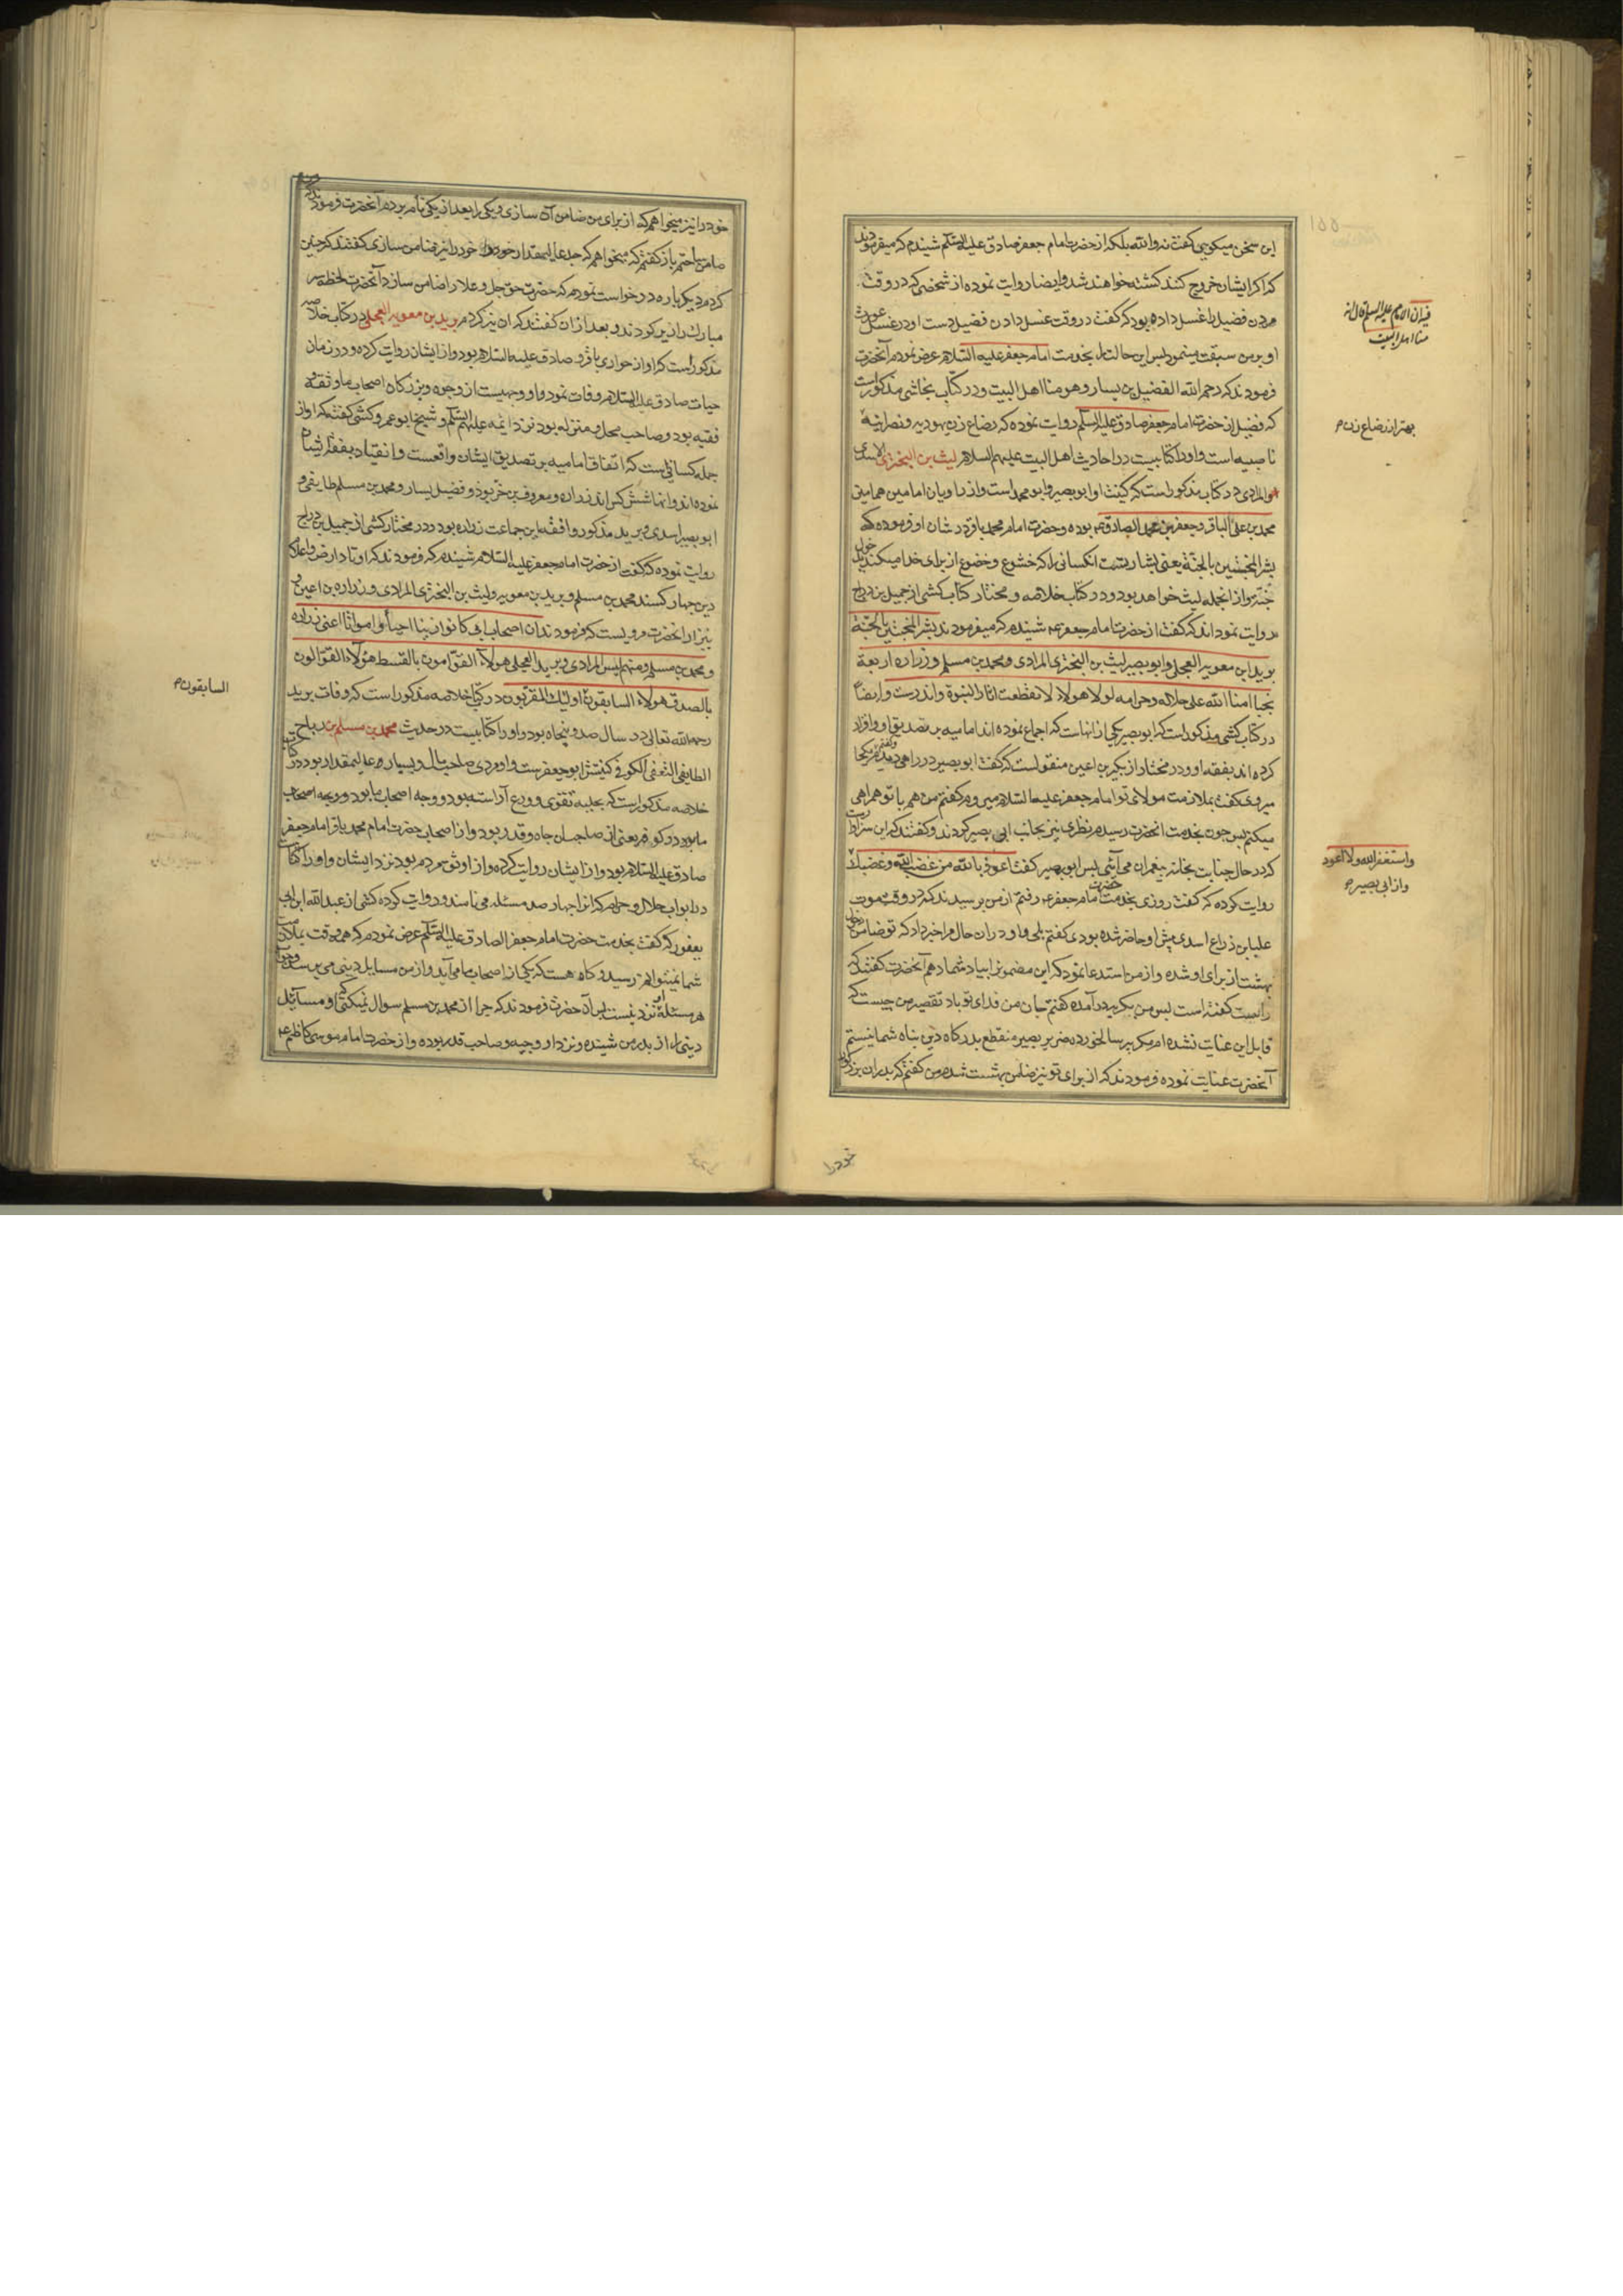 این سخن میکویی کفت نه والله بلکه از حضرت امام جعفر صادق علیه السلام شنیدم که میفرمودند
که اکر ایشان خروج کنند کشته خواهند شد وایضا روایت نموده از شخصی که در وقت
مردن فضیل را غسل داده بود که کفت در وقت غسل دادن فضیل دست او در غسل عورت
او بر من سبقت مینمود پس این حالت را بخدمت امام جعفر علیه السلام عرض نمودم آنحضرت
فرمودند که رحم الله الفضیل بن یسار وهو منا اهل البیت ودر کتاب نجاشی مذکور است
که فضیل از حضرت امام جعفر صادق علیه السلام روایت نموده که رضاع زن یهودیه ونصرانیه
ناصبیه است واورا کتابیست در احادیث اهل البیت علیهم السلام لیث بن البختری الاسدی
والمرادی در کتاب مذکور است که کنیت او ابوبصیر وابو محمد است واز راویان امامین همامین
محمد بن علی الباقر وجعفر بن محمد الصادق ع بوده وحضرت امام محمد باقر در شان او فرموده که
بشر المخبتین بالجنة یعنی بشارتست انکسانی را که خشوع وخضوع از برای خدا میکنند بدخول
جنت واز انجمله لیث خواهد بود ودر کتاب خلاصه ومختار کتاب کشی از جمیل بن دراج
روایت نموده اند که کفت از حضرت امام جعفر ع شنیدم که میفرمودند بشر المخبتین بالجنة
برید بن معویه العجلی وابو بصیر لیث بن البختری المرادی ومحمد بن مسلم وزراره اربعة
نجبا امنا الله علی حلاله وحرامه لولا هولاء لانقطعت اثار النبوة واندرست وایضا
در کتاب کشی مذکور است که ابو بصیر یکی از انهاست که اجماع نموده اند امامیه بر تصدیق او واقرار
کرده اند بفقه او ودر مختار از بکیر بن اعین منقولست که کفت ابو بصیر در راهی دیدم وکفتم بکجا
میروی کفت بملازمت مولای تو امام جعفر علیه السلام میروم کفتم من هم با تو همراهی
میکنم پس چون بخدمت انحضرت رسیدم نظری تیز بجانب ابی بصیر کردند وکفتند که این سزاوارست
که در حال جنابت بخانه پیغمبران می آئی پس ابو بصیر کفت اعوذ بالله من غضب الله وغضبک
روایت کرده که کفت روزی بخدمت حضرت امام جعفر ع رفتم از من پرسیدند که در وقت موت
علیا بن ذراع اسدی پیش او حاضر شده بودی کفتم بلی واو در ان حال مرا خبر داد که تو ضامن دخول
بهشت از برای او شده واز من استدعا نمود که این مضمون را بیاد شما دهم آنحضرت کفتند که
راست کفته است پس من بکریه درآمده کفتم جان من فدای تو باد تقصیر من چیست که
قابل این عنایت نشده ام مکر پیر سالخورده ضریر بصیر منقطع بدرکاه دین پناه شما نیستم
آنحضرت عنایت نموده فرمودند که از برای تو نیز ضامن بهشت شدم من کفتم که پدران بزرکوار
قال انه
منا اهل البیت
بهتر از رضاع زن م
واستغفر الله ولا اعود
واز ابی بصیر م
خود را
خود را نیز میخواهم که از برای من ضامن آن سازی ویکی را بعد از یکی نام بردم آنحضرت فرمودند که
ضامن ساختم باز کفتم که میخواهم که جد عالیمقدار خود را نیز ضامن سازی کفتند که چنین
کردم دیکر باره درخواست نمودم که حضرت حق جل وعلا را ضامن سازد آنحضرت لحظه سر
مبارک را زیر کردند وبعد از ان کفتند که ان نیز کردم برید بن معویه العجلی در کتاب خلاصه
مذکور است که او از حواری باقر وصادق علیه السلام بود واز ایشان روایت کرده ودر زمان
حیات صادق علیه السلام وفات نمود واو وجهیست از وجوه وبزرکان اصحاب ما وثقه و
فقیه بود وصاحب محل ومنزله بود نزد ائمه علیهم السلام وشیخ ابو عمرو کشی کفته که او از
جمله کسانی است که اتفاق امامیه بر تصدیق ایشان واقعست وانقیاد بفقه ایشان
نموده اند وانها شش کس اند زراره ومعروف بن خربوذ وفضیل یسار ومحمد بن مسلم طایفی و
ابو بصیر اسدی وبرید مذکور وافقه این جماعت زراره بود ودر مختار کشی از جمیل بن دراج
روایت نموده که کفت از حضرت امام جعفر علیه السلام شنیدم که فرمودند که اوتاد ارض واعلام
دین چهار کسند محمد بن مسلم وبرید بن معویه ولیث بن البختری المرادی وزراره بن اعین و
نیز از انحضرت مرویست که فرمودند ان اصحاب ابی کانوا زینا احیاء وامواتا اعنی زراره
ومحمد بن مسلم ومنهم لیس المرادی وبرید العجلی هولاء القوامون بالقسط هولاء القوالون
بالصدق هولاء السابقون اولئک المقربون در کتاب خلاصه مذکور است که وفات برید
رحمه الله تعالی در سال صد وپنجاه بود واورا کتابیست در حدیث محمد بن مسلم بن رباح
الطایفی الثقفی الکوفی کنیتش ابو جعفر ست واو مردی صاحب مال وبسیار عالیمقدار بود در کتاب
خلاصه مذکور است که بحلیه تقوی وورع آراسته بود ووجه اصحاب ما بود ووجه اصحاب
ما بود در کوفه یعنی از صاحبان جاه وقدر بود واز اصحاب حضرت امام محمد باقر وامام جعفر
صادق علیه السلام بود واز ایشان روایت کرده واز اوثق مردم بود نزد ایشان واورا کتابیست
در ابواب حلال وحرام که انرا چهار صد مسئله می نامند وروایت کرده کشی از عبد الله ابن ابی
یعفور که کفت بخدمت حضرت امام جعفر الصادق علیه السلام عرض نمودم که همه وقت بملازمت
شما نمیتوانم رسید وکاه هست که یکی از اصحاب ما می آید واز من مسایل دینی می پرسد وجواب
هر مسئله نزد من نیست پس آن حضرت فرمودند که چرا از محمد بن مسلم سوال نمیکنی که او مسائل
دینی را از پدر من شنیده ونزد او وجیه وصاحب قدر بوده واز حضرت امام موسی کاظم ع
السابقون م